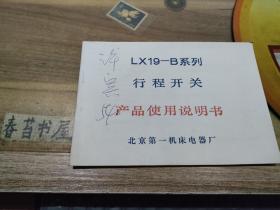 LX19-B系列
行程开关
产品使用说明书
北京第一机床电器厂
春苔书屋